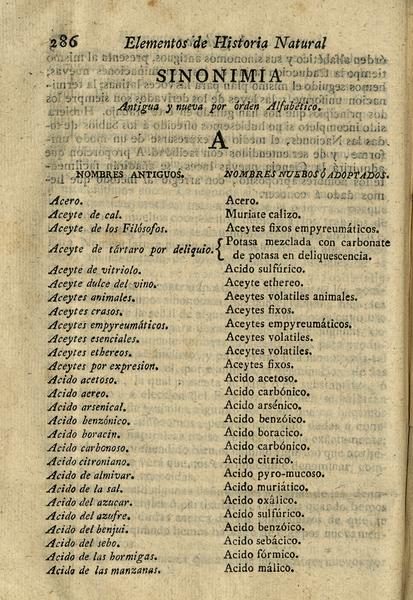 286 Elementos de Historia Natural
SINONIMIA
Antigua y nueva por órden Alfabético.
A
NOMBRES ANTIGUOS. NOMBRES NUEBOS Ó ADOPTADOS.
Acero. Acero.
Aceyte de cal. Muriate calizo.
Aceyte de los Filósofos. Aceytes fixos empyreumáticos.
Aceyte de tártaro por deliquio. { Potasa mezclada con carbonate
de potasa en deliquescencia.
Aceyte de vitriolo. Acido sulfúrico.
Aceyte dulce del vino. Aceyte ethereo.
Aceytes animales. Aceytes volatiles animales.
Aceytes crasos. Aceytes fixos.
Aceytes empyreumáticos. Aceytes empyreumáticos.
Aceytes esenciales. Aceytes volatiles.
Aceytes ethereos. Aceytes volatiles.
Aceytes por expresion. Aceytes fixos.
Acido acetoso. Acido acetoso.
Acido aereo. Acido carbónico.
Acido arsenical. Acido arsénico.
Acido benzónico. Acido benzóico.
Acido boracin. Acido boracico.
Acido carbonoso. Acido carbónico.
Acido citroniano. Acido citrico.
Acido de almivar. Acido pyro-mucoso.
Acido de la sal. Acido muriático.
Acido del azucar. Acido oxálico.
Acido del azufre. Acido sulfúrico.
Acido del benjui. Acido benzóico.
Acido del sebo. Acido sebácico.
Acido de las hormigas. Acido fórmico.
Acido de las manzanas. Acido málico.